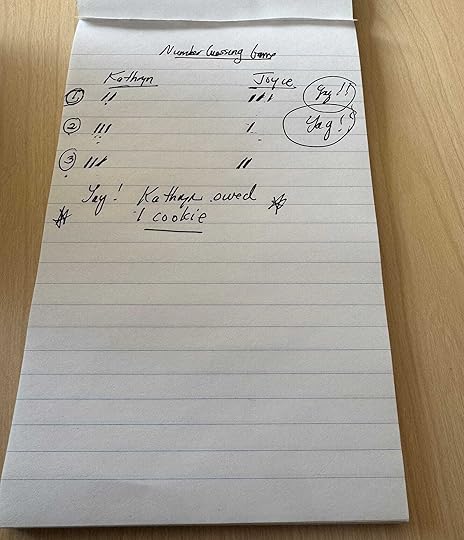 Number Guessing Game
Kathryn Joyce
1 || ||| Yay!!
2 ||| | Yay!!
3 ||| ||
Yay! Kathryn owed
1 cookie